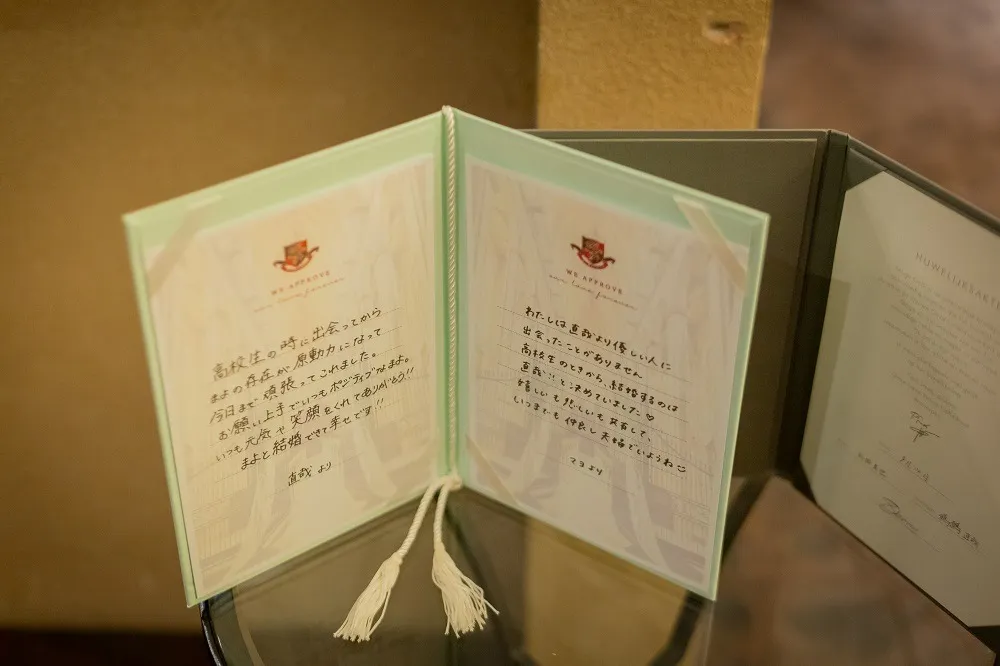 WE APPROVE
our love forever
高校生の時に出会ってから
まよの存在が原動力になって
今日まで頑張ってこれました。
お願い上手でいつもポジティブなまよ。
いつも元気や笑顔をくれてありがとう!!
まよと結婚できて幸せです!!
直哉より
WE APPROVE
our love forever
わたしは直哉より優しい人に
出会ったことがありません
高校生のときから、結婚するのは
直哉!!と決めていました♡
嬉しいも悲しいも共有して、
いつまでも仲良し夫婦でいようね
マヨより
HUWELIJKSAKT